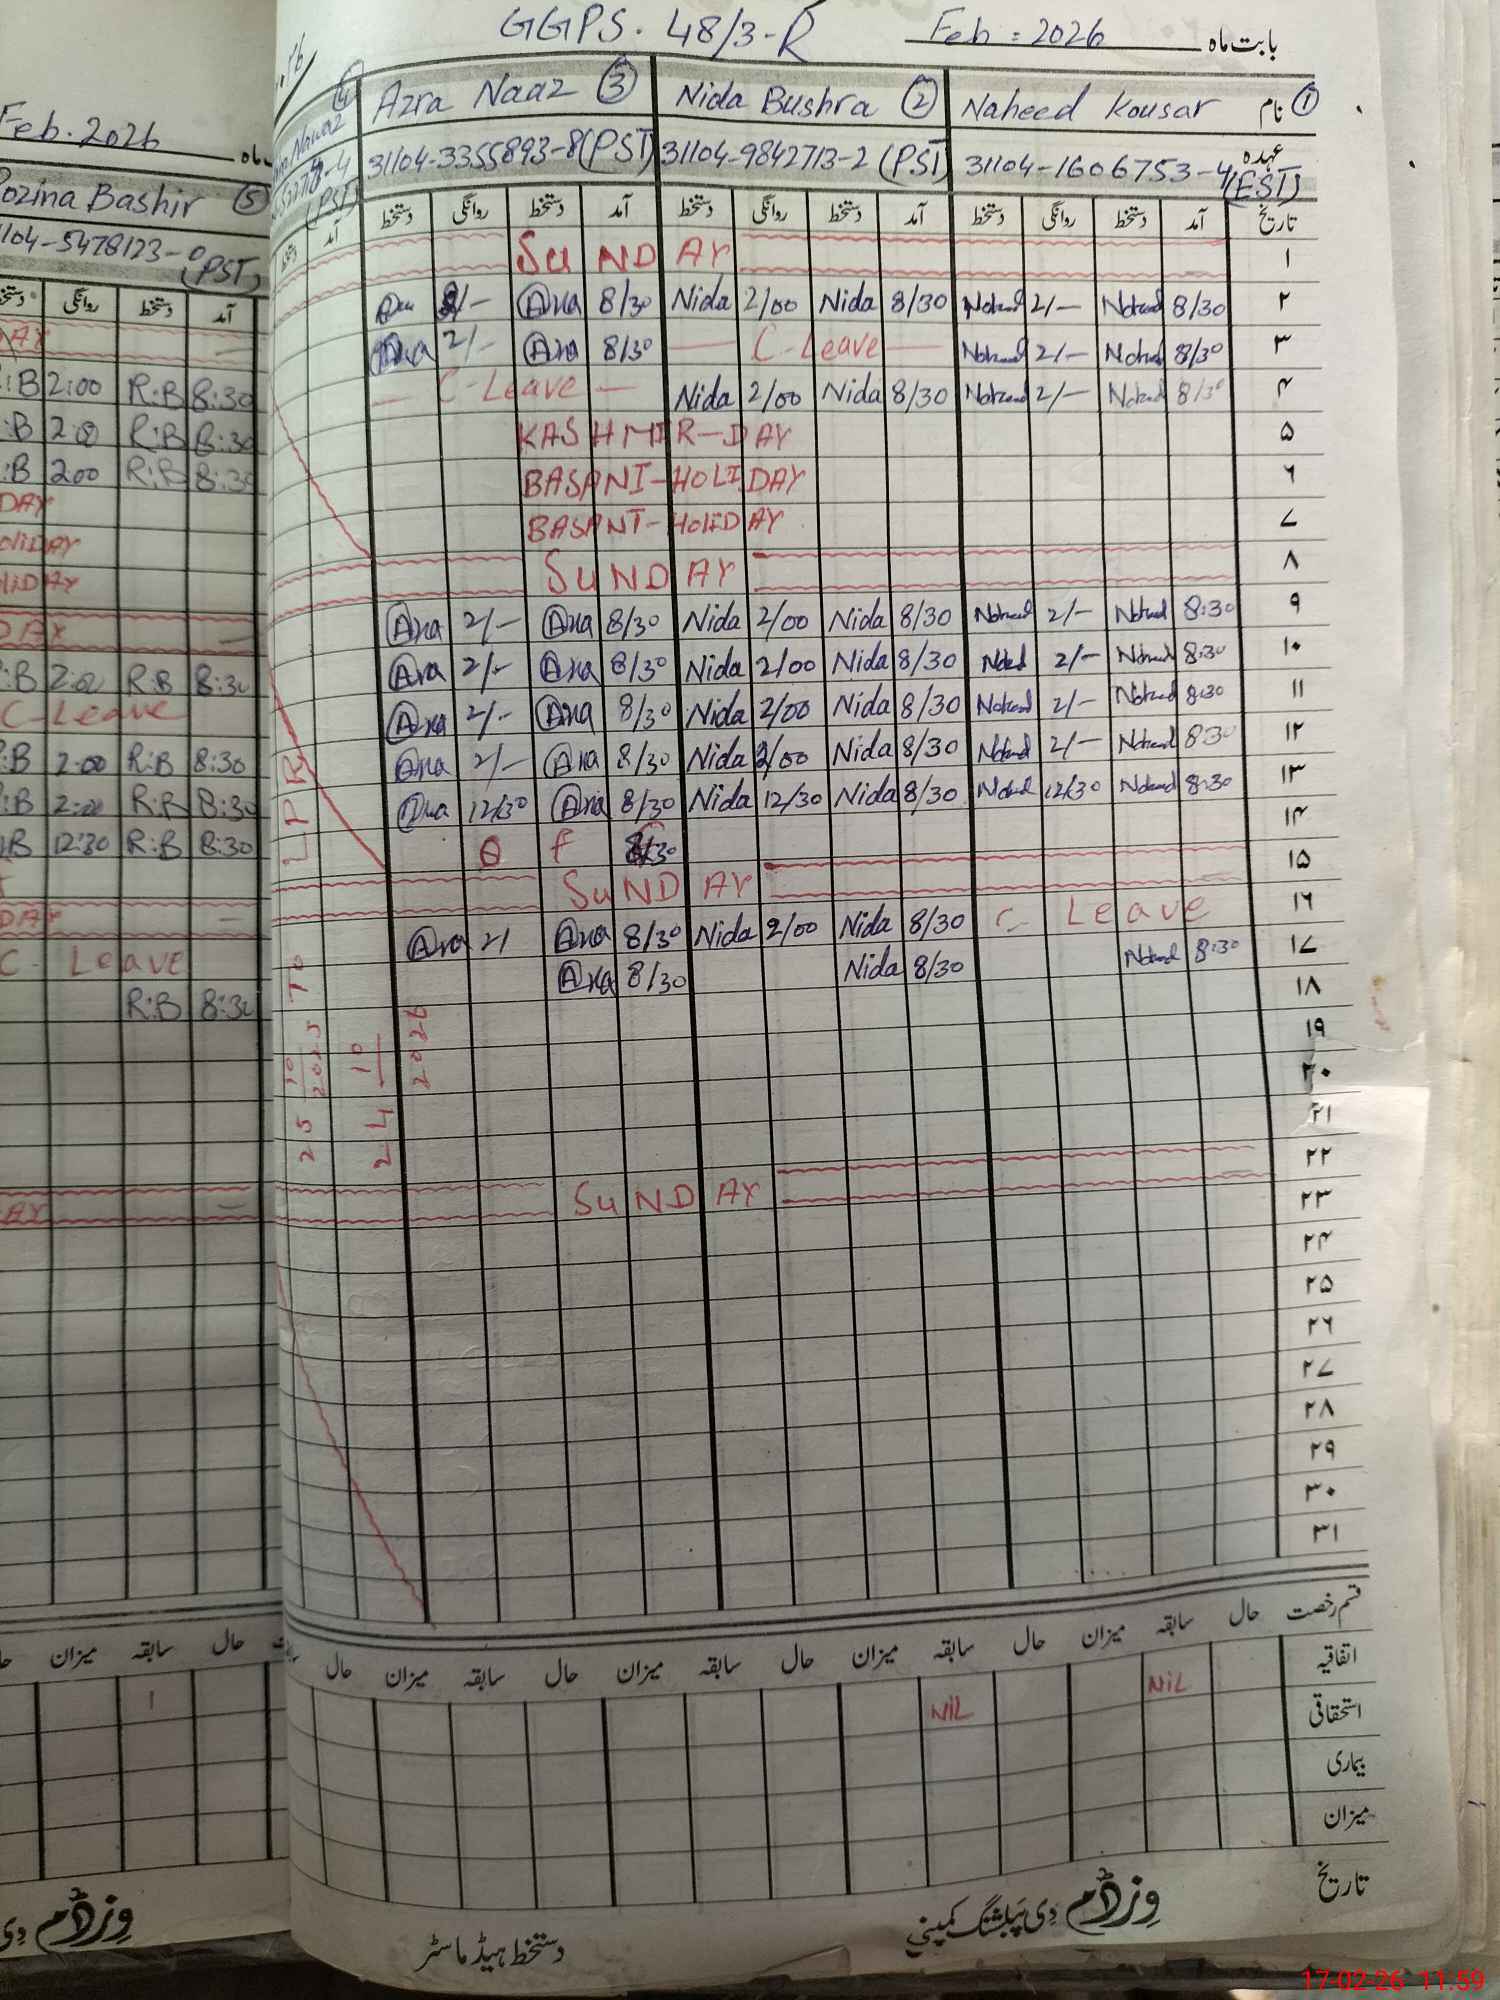 GGPS. 48/3-R Feb: 2026 بابت ماہ
Azra Naaz ③ Nida Bushra ② Naheed Kousar نام ①
31104-3355893-8 (PST) 31104-9842713-2 (PST) 31104-1606753-4 (EST) عہدہ
دستخط روانگی دستخط آمد دستخط روانگی دستخط آمد دستخط روانگی دستخط آمد تاریخ
SUNDAY ۱
2/- Azra 8/30 Nida 2/00 Nida 8/30 Naheed 2/- Naheed 8/30 ۲
Azra 2/- Azra 8/30 C-Leave Naheed 2/- Naheed 8/30 ۳
C-Leave Nida 2/00 Nida 8/30 Naheed 2/- Naheed 8/30 ۴
KASHMIR-DAY ۵
BASANT-HOLIDAY ۶
BASANT-HOLIDAY ۷
SUNDAY ۸
Azra 2/- Azra 8/30 Nida 2/00 Nida 8/30 Naheed 2/- Naheed 8:30 ۹
Azra 2/- Azra 8/30 Nida 2/00 Nida 8/30 Naheed 2/- Naheed 8:30 ۱۰
Azra 2/- Azra 8/30 Nida 2/00 Nida 8/30 Naheed 2/- Naheed 8:30 ۱۱
Azra 2/- Azra 8/30 Nida 2/00 Nida 8/30 Naheed 2/- Naheed 8:30 ۱۲
Azra 12/30 Azra 8/30 Nida 12/30 Nida 8/30 Naheed 12/30 Naheed 8:30 ۱۳
O f f ۱۴
SUNDAY ۱۵
Azra 2/ Azra 8/30 Nida 2/00 Nida 8/30 C- Leave ۱۶
Azra 8/30 Nida 8/30 Naheed 8:30 ۱۷
۱۸
۱۹
۲۰
۲۱
SUNDAY ۲۲
۲۳
۲۴
۲۵
۲۶
۲۷
۲۸
۲۹
۳۰
۳۱
LPR
25 10 2025 TO
24 10 2026
حال میزان سابقہ حال میزان سابقہ حال میزان سابقہ حال میزان سابقہ حال قسم رخصت
NIL NIL اتفاقیہ
استحقاقی
بیماری
میزان
تاریخ
دستخط ہیڈ ماسٹر وزڈم دی پبلشنگ کمپنی
Feb. 2026 ماہ
Rozina Bashir ⑤
31104-5478123-0 (PST)
دستخط روانگی دستخط آمد
R:B 2:00 R:B 8:30
R:B 2:00 R:B 8:30
R:B 2:00 R:B 8:30
R:B 2:00 R:B 8:30
C-Leave
R:B 2:00 R:B 8:30
R:B 2:00 R:B 8:30
R:B 12:30 R:B 8:30
C- Leave
R:B 8:30
میزان سابقہ حال
1
وزڈم دی
17-02-26 11:59